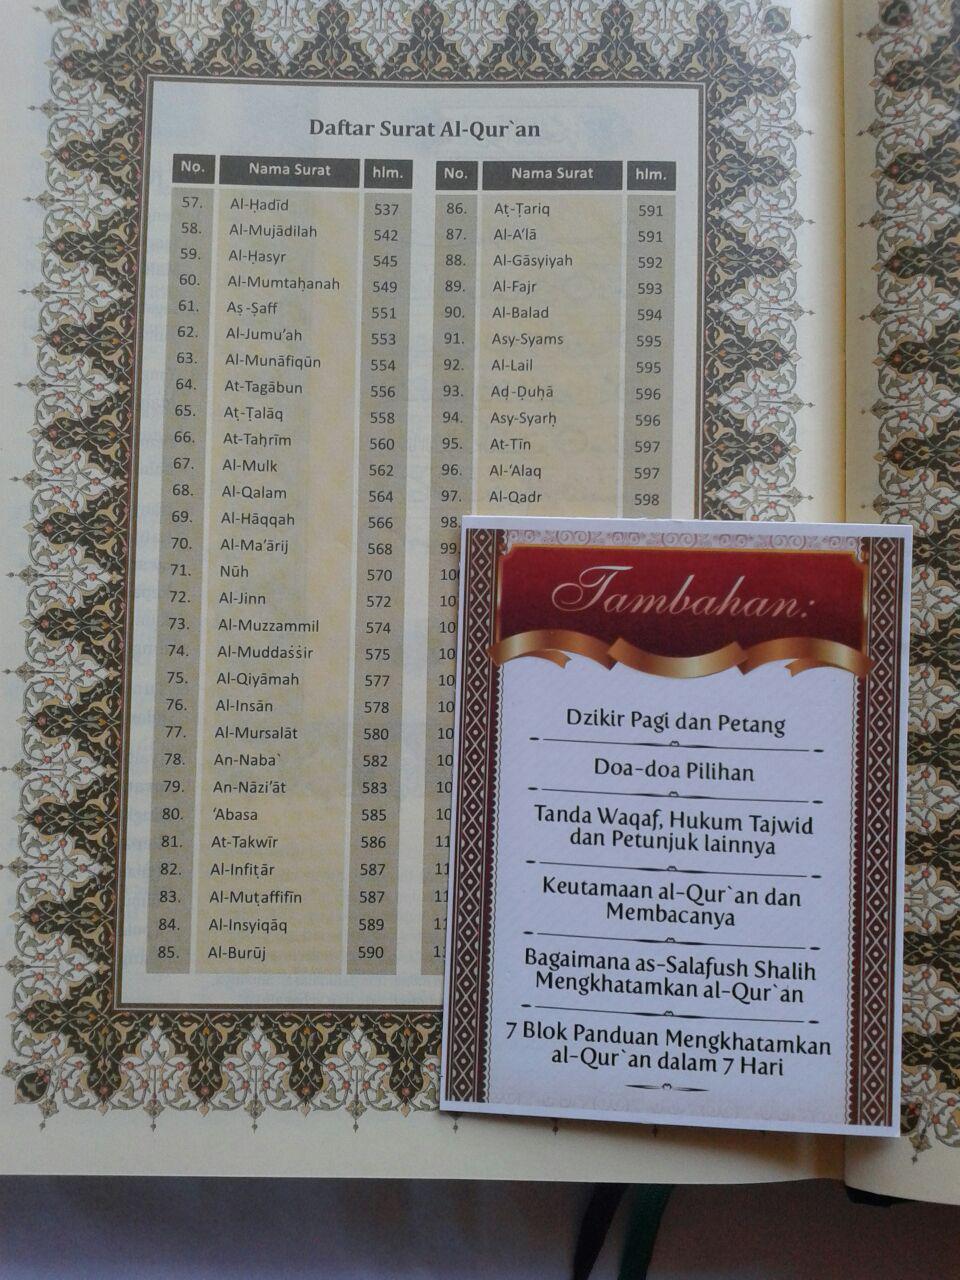 Daftar Surat Al-Qur`an
No. Nama Surat hlm.
57. Al-Ḥadīd 537
58. Al-Mujādilah 542
59. Al-Ḥasyr 545
60. Al-Mumtaḥanah 549
61. Aṣ-Ṣaff 551
62. Al-Jumu’ah 553
63. Al-Munāfiqūn 554
64. At-Tagābun 556
65. Aṭ-Ṭalāq 558
66. At-Taḥrīm 560
67. Al-Mulk 562
68. Al-Qalam 564
69. Al-Hāqqah 566
70. Al-Ma’ārij 568
71. Nūh 570
72. Al-Jinn 572
73. Al-Muzzammil 574
74. Al-Muddaṡṡir 575
75. Al-Qiyāmah 577
76. Al-Insān 578
77. Al-Mursalāt 580
78. An-Naba` 582
79. An-Nāzi’āt 583
80. ‘Abasa 585
81. At-Takwīr 586
82. Al-Infiṭār 587
83. Al-Muṭaffifīn 587
84. Al-Insyiqāq 589
85. Al-Burūj 590
No. Nama Surat hlm.
86. Aṭ-Ṭariq 591
87. Al-A‘lā 591
88. Al-Gāsyiyah 592
89. Al-Fajr 593
90. Al-Balad 594
91. Asy-Syams 595
92. Al-Lail 595
93. Aḍ-Ḍuḥā 596
94. Asy-Syarḥ 596
95. At-Tīn 597
96. Al-‘Alaq 597
97. Al-Qadr 598
98.
99.
Tambahan:
Dzikir Pagi dan Petang
Doa-doa Pilihan
Tanda Waqaf, Hukum Tajwid
dan Petunjuk lainnya
Keutamaan al-Qur`an dan
Membacanya
Bagaimana as-Salafush Shalih
Mengkhatamkan al-Qur`an
7 Blok Panduan Mengkhatamkan
al-Qur`an dalam 7 Hari